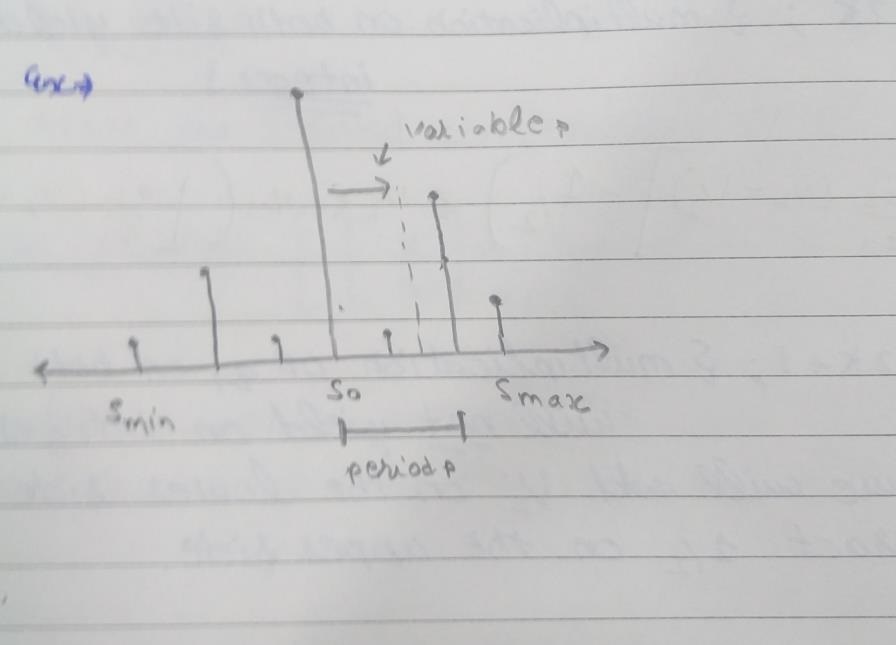 ex→
variable p
s0
smin
smax
period p